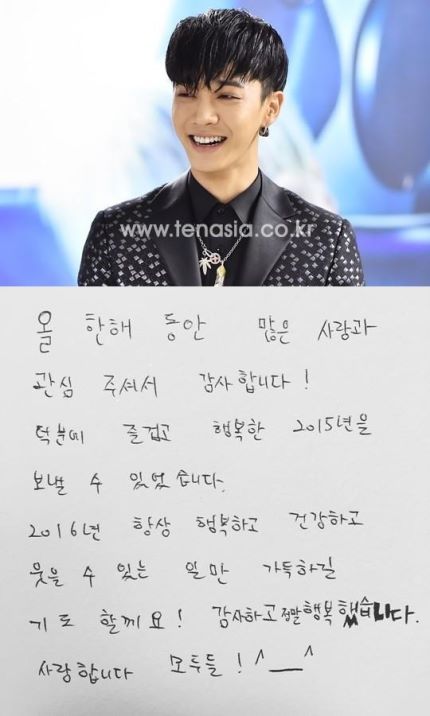 www.tenasia.co.kr
올 한해 동안 많은 사랑과
관심 주셔서 감사합니다!
덕분에 즐겁고 행복한 2015년을
보낼 수 있었습니다.
2016년 항상 행복하고 건강하고
웃을 수 있는 일만 가득하길
기도 할께요! 감사하고 정말행복했습니다.
사랑합니다 모두들! ^__^